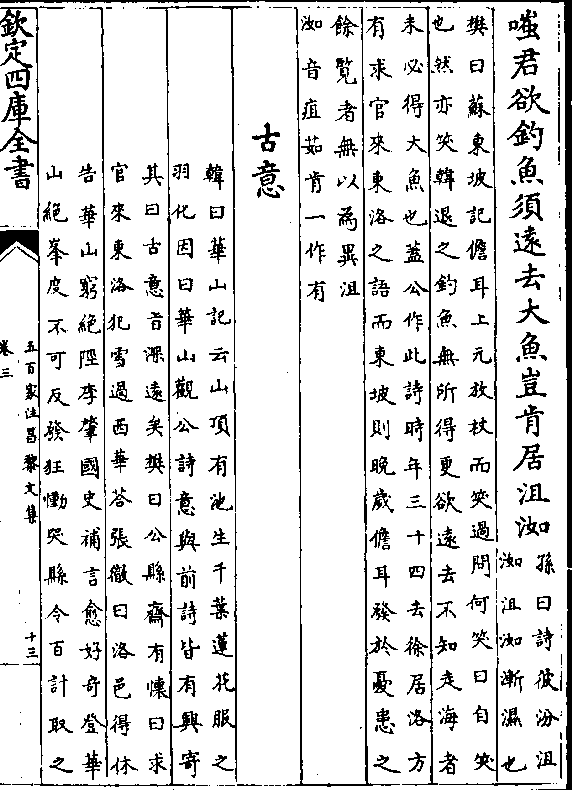 嗤君欲釣魚須遠去大魚豈肯居沮洳
孫曰詩彼汾沮
洳沮洳漸濕也
樊曰蘇東坡記儋耳上元放杖而笑過問何笑曰自笑
也然亦笑韓退之釣魚無所得更欲遠去不知走海者
未必得大魚也蓋公作此詩時年三十四去徐居洛方
有求官來東洛之語而東坡則晚歲儋耳發於憂患之
餘覽者無以為異沮
洳音疽茹肯一作有
古意
韓曰華山記云山頂有池生千葉蓮花服之
羽化因曰華山觀公詩意與前詩皆有興寄
其曰古意旨深遠矣樊曰公縣齋有懷曰求
官來東洛犯雪過西華荅張徹曰洛邑得休
告華山窮絕陘李肇國史補言愈好奇登華
山絕峯度不可反發狂慟哭縣令百計取之
欽定四庫全書
五百家注昌黎文集
卷三
十三